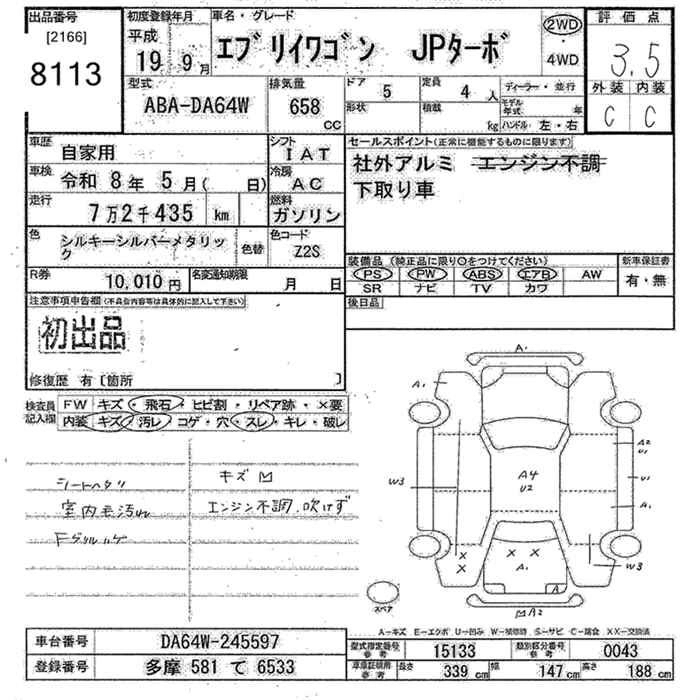 出品番号
[2166]
8113
初度登録年月
平成
19 9月
車名・グレード
エブリイワゴン JPターボ
2WD
・
4WD
評価点
3.5
外装 内装
C C
型式
ABA-DA64W
排気量
658
CC
ドア
5
定員
4 人
形状
積載
kg
ディーラー・並行
モデル年式 年
ハンドル 左・右
車歴
自家用
シフト
IAT
車検
令和 8年 5月( 日)
冷房
AC
走行
7万2千435 km
燃料
ガソリン
色
シルキーシルバーメタリック
色替
色コード
Z2S
R券
10,010円
名変通知期限
月 日
セールスポイント(正常に機能するものに限ります)
社外アルミ エンジン不調
下取り車
装備品 (純正品に限り○をつけてください)
PS PW ABS エアB AW
SR ナビ TV カワ
新車保証書
有・無
後日品
注意事項申告欄(不具合内容等は具体的に記入して下さい)
初出品
修復歴 有[箇所 ]
検査員記入欄
FW キズ・飛石・ヒビ割・リペア跡・×要
内装 キズ・汚レ・コゲ・穴・スレ・キレ・破レ
シートヘタリ
室内毛汚れ
キズ
エンジン不調.吹けず
A1
A1
A2
U1
W3
A4
U2
U1
A1
X
X
X X
A1
A
W3
A2
スペア
A-キズ E-エクボ U-凹み W-補修跡 S-サビ C-腐食 XX-交換済
車台番号
DA64W-245597
登録番号
多摩 581 て 6533
型式指定番号
参考
15133
類別区分番号
参考
0043
車庫証明用
参考
長さ
339 cm
幅
147 cm
高さ
188 cm